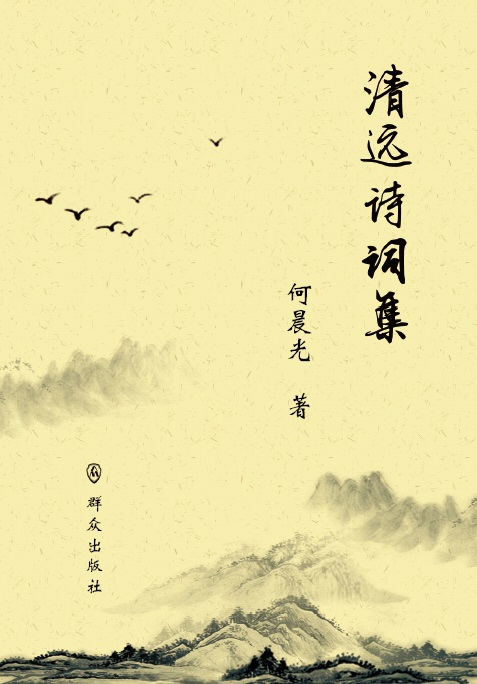 清远诗词集
何晨光 著
群众出版社